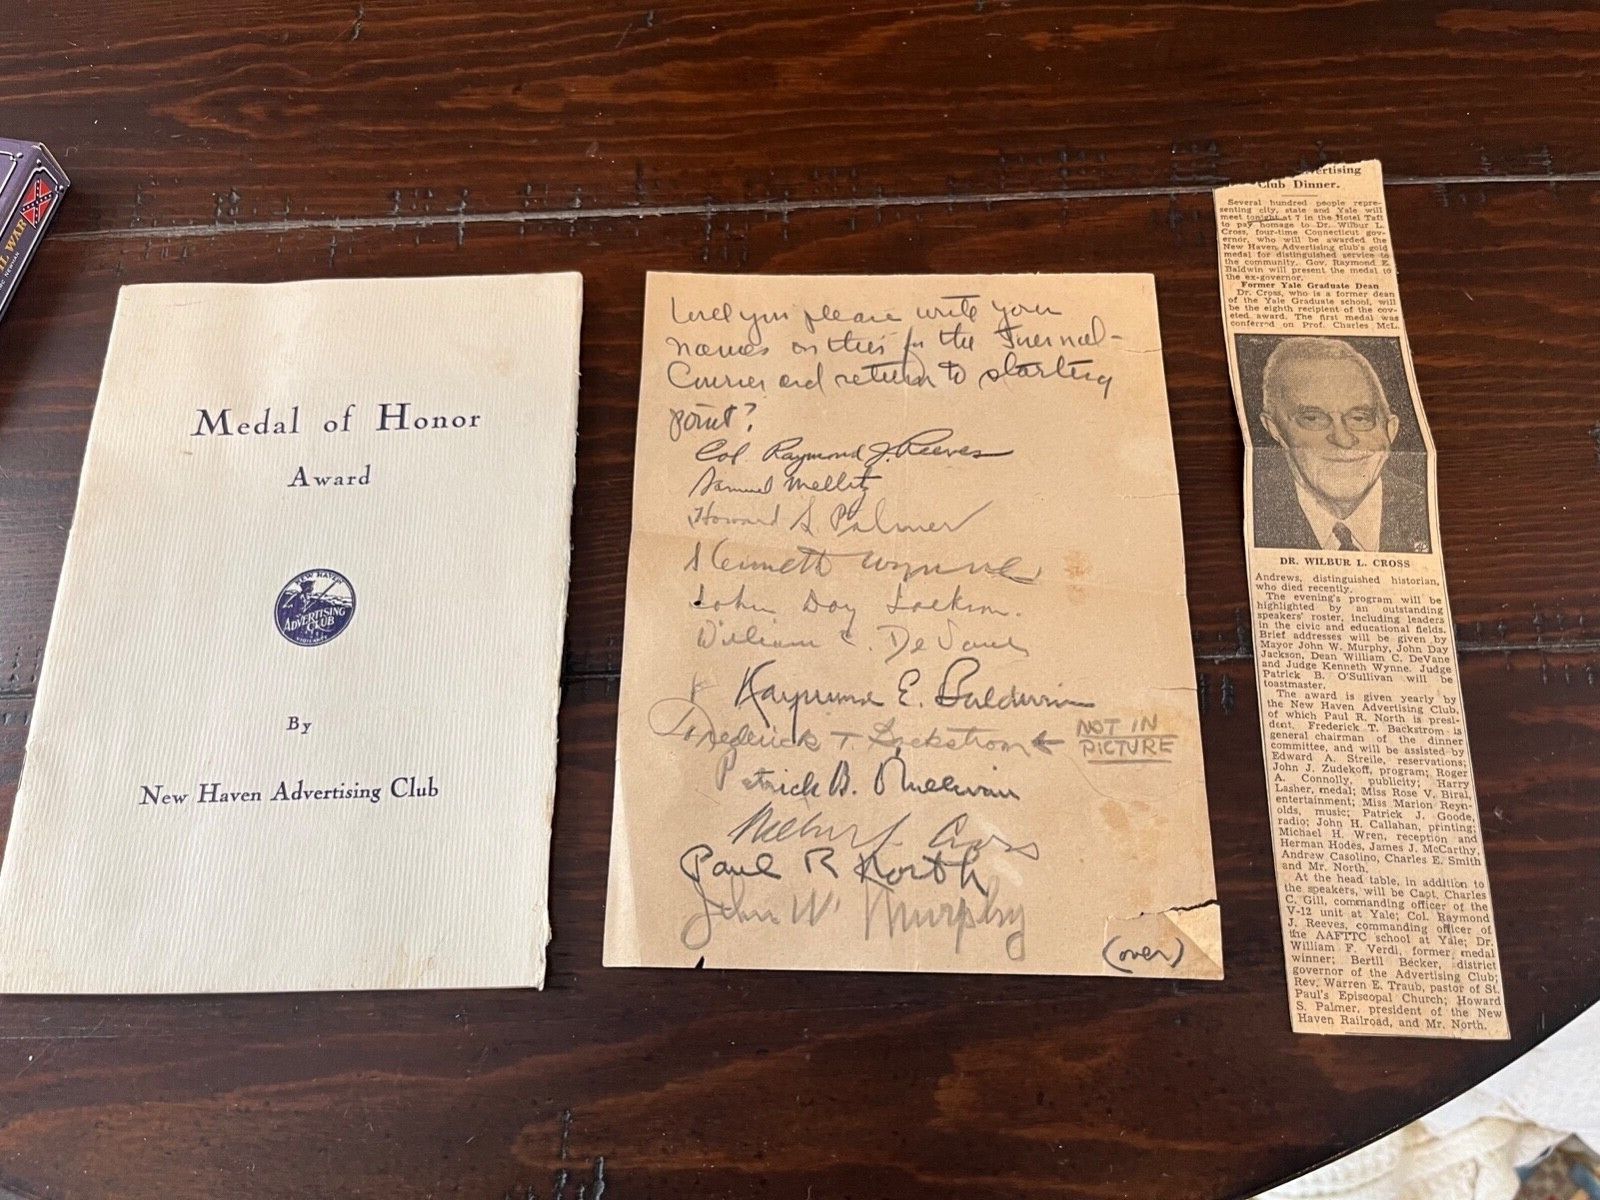 IL WAR
NEWMAN
Medal of Honor
Award
NEW HAVEN
ADVERTISING
CLUB
VIGILANCE
By
New Haven Advertising Club
you please write your
names on this for the Journal-
Courier and return to starting
point?
Col. Raymond J. Reeves
Samuel Mellitz
Howard S Palmer
Kenneth Wynne
John Day Jackson.
William C. DeVane
Raymond E. Baldwin
Frederick T. Backstrom ← NOT IN
PICTURE
Patrick B. O'Sullivan
Wilbur L. Cross
Paul R North
John W. Murphy
(over)
Club Dinner.
Several hundred people repre-
senting city, state and Yale will
meet tonight at 7 in the Hotel Taft
to pay homage to Dr. Wilbur L.
Cross, four-time Connecticut gov-
ernor, who will be awarded the
New Haven Advertising club's gold
medal for distinguished service to
the community. Gov. Raymond E.
Baldwin will present the medal to
the ex-governor.
Former Yale Graduate Dean
Dr. Cross, who is a former dean
of the Yale Graduate school, will
be the eighth recipient of the cov-
eted award. The first medal was
conferred on Prof. Charles McL.
DR. WILBUR L. CROSS
Andrews, distinguished historian,
who died recently.
The evening's program will be
highlighted by an outstanding
speakers' roster, including leaders
in the civic and educational fields.
Brief addresses will be given by
Mayor John W. Murphy, John Day
Jackson, Dean William C. DeVane
and Judge Kenneth Wynne. Judge
Patrick B. O'Sullivan will be
toastmaster.
The award is given yearly by
the New Haven Advertising Club,
of which Paul R. North is presi-
dent. Frederick T. Backstrom is
general chairman of the dinner
committee, and will be assisted by
Edward A. Streile, reservations;
John J. Zudekoff, program; Roger
A. Connolly, publicity; Harry
Lasher, medal; Miss Rose V. Biral,
entertainment; Miss Marion Reyn-
olds, music; Patrick J. Goode,
radio; John H. Callahan, printing;
Michael H. Wren, reception and
Herman Hodes, James J. McCarthy,
Andrew Casolino, Charles E. Smith
and Mr. North.
At the head table, in addition to
the speakers, will be Capt. Charles
C. Gill, commanding officer of the
V-12 unit at Yale; Col. Raymond
J. Reeves, commanding officer of
the AAFTTC school at Yale; Dr.
William F. Verdi, former medal
winner; Bertil Becker, district
governor of the Advertising Club;
Rev. Warren E. Traub, pastor of St.
Paul's Episcopal Church; Howard
S. Palmer, president of the New
Haven Railroad, and Mr. North.